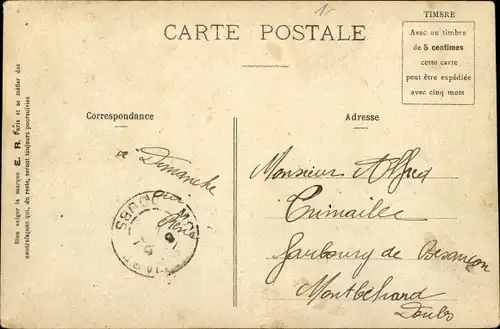 CARTE POSTALE
TIMBRE
Avec un timbre
de 5 centimes
cette carte
peut être expédiée
avec cinq mots
Correspondance
Adresse
a Dimanche
DOUBS
Monsieur Alfred
Faubourg de Besançon
Montbéliard
Doubs
Bien exiger la marque E. R. Paris et se méfier des
contrefaçons qui, du reste, seront toujours poursuivies